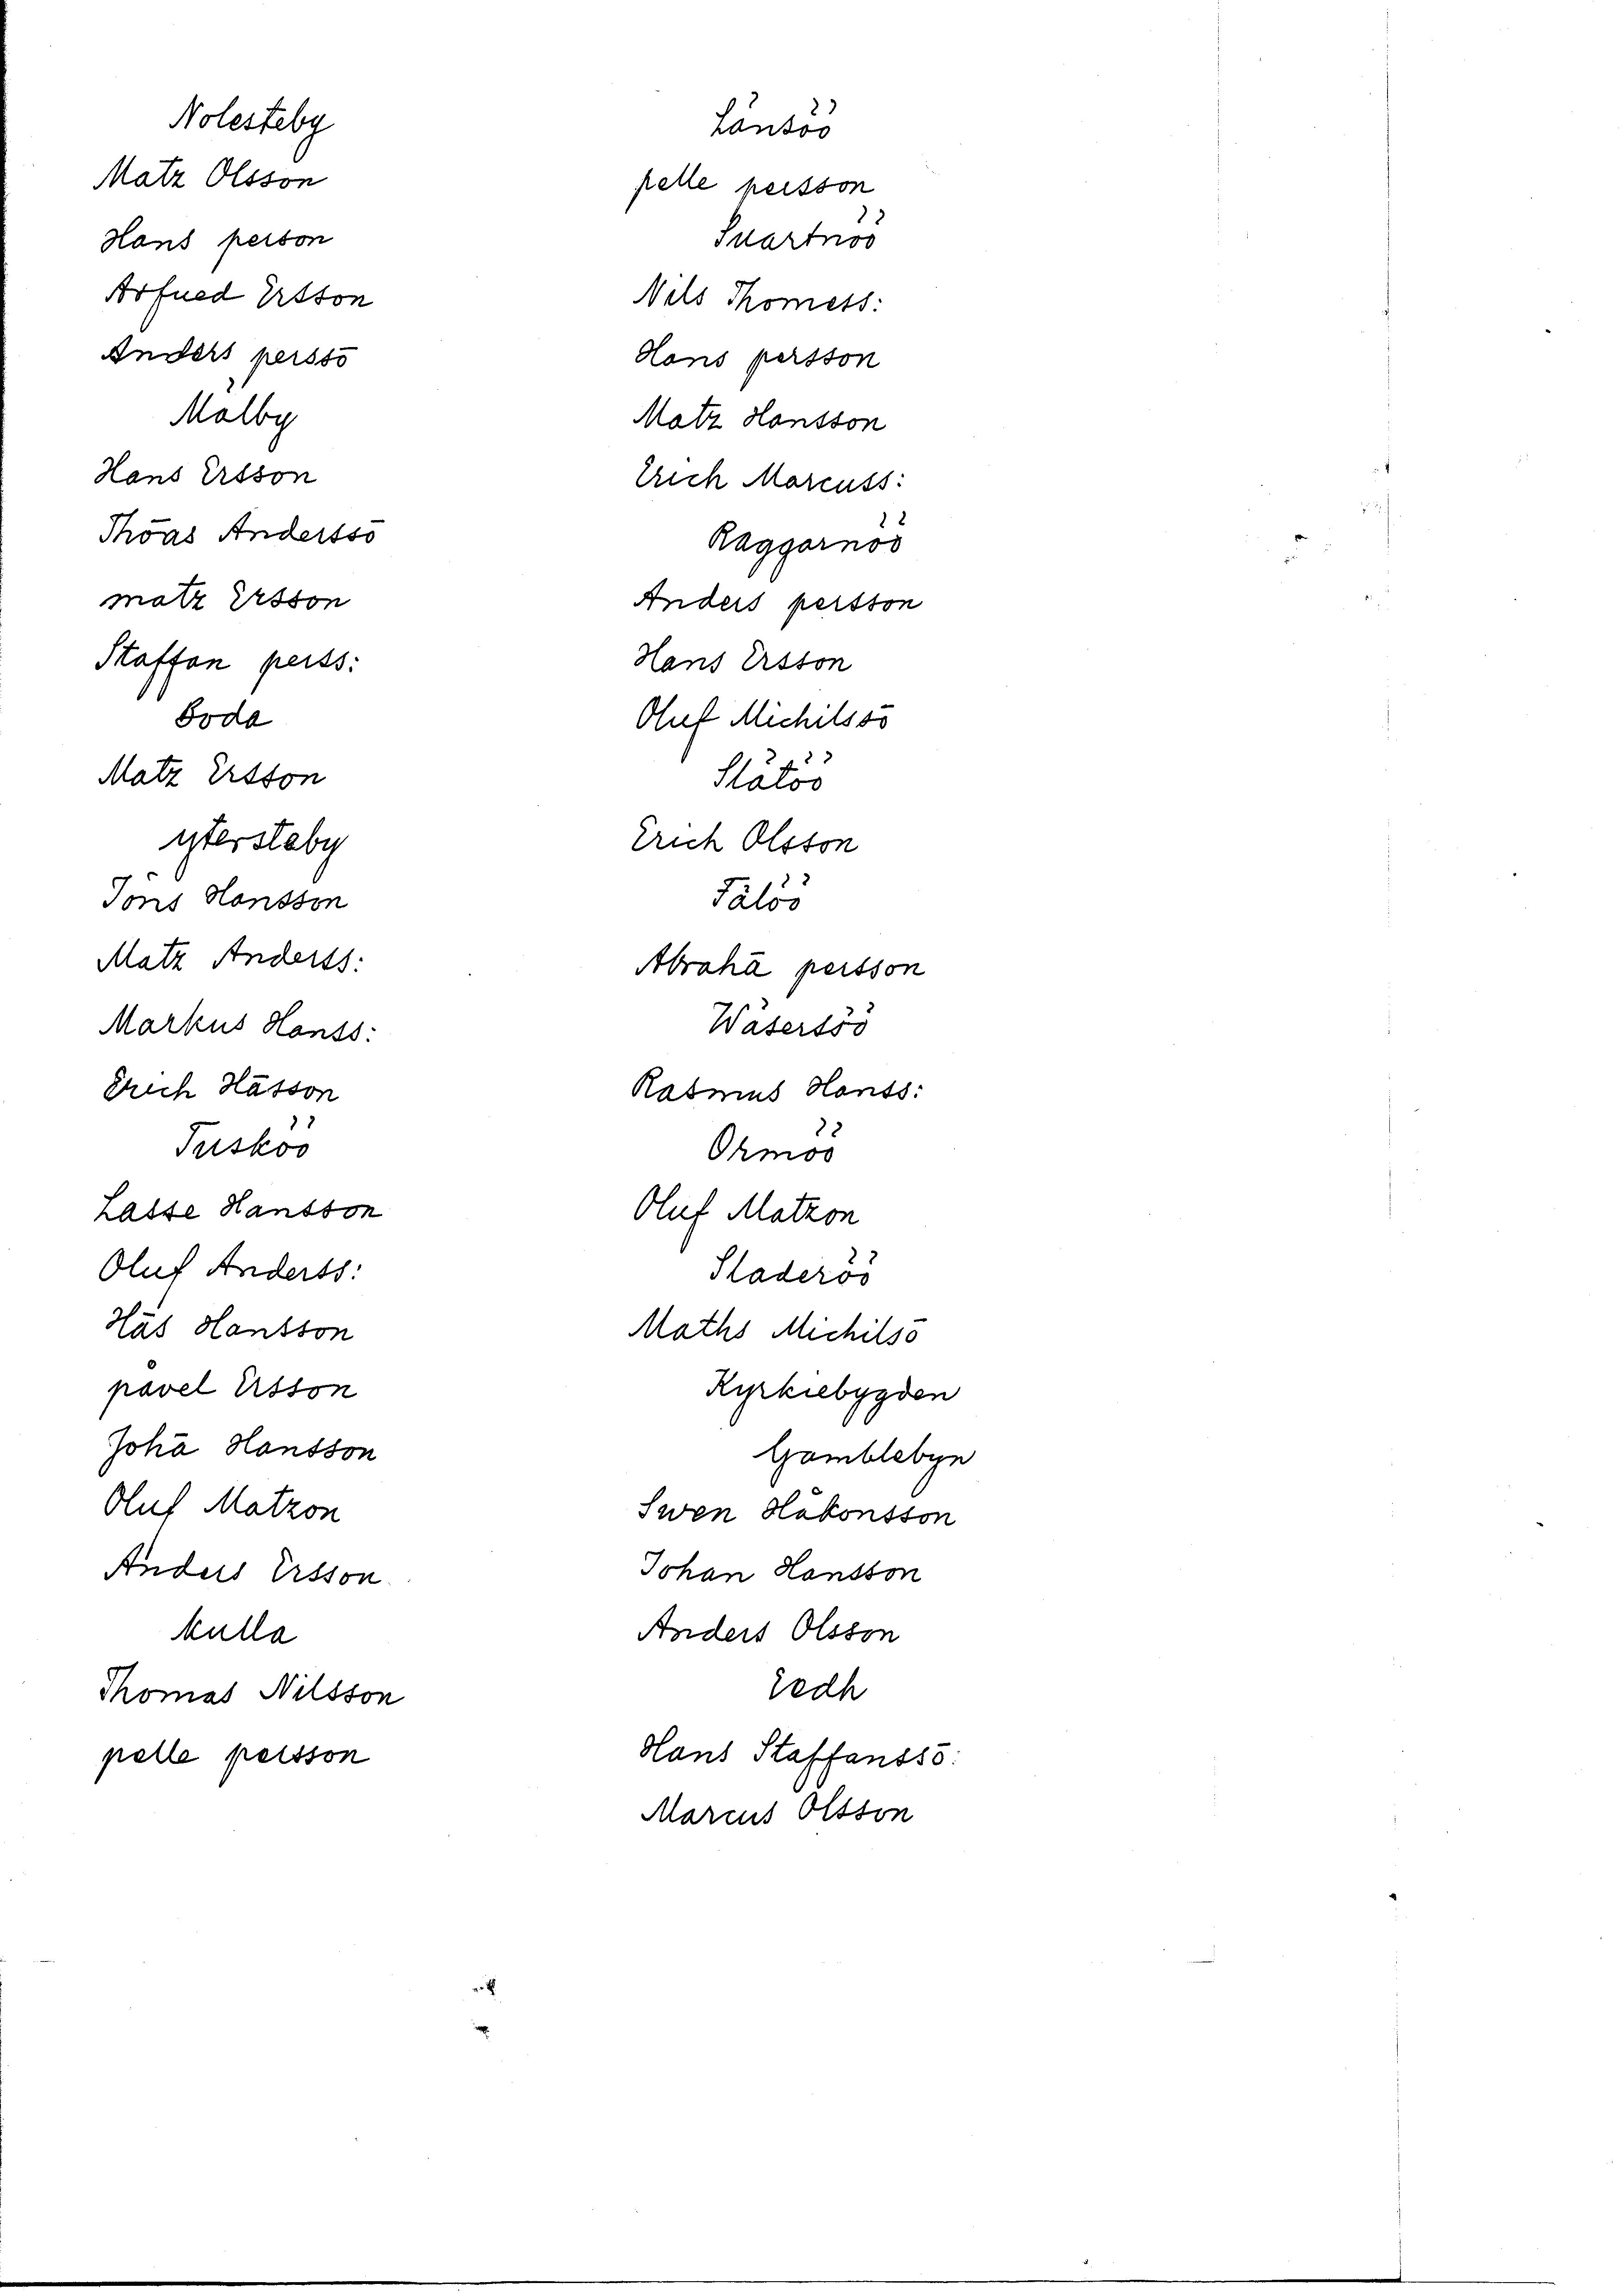 Nolesteby
Matz Olsson
Hans person
Arfued Ersson
Anders perssō
Mälby
Hans Ersson
Thōas Anderssō
matz Ersson
Staffan perss:
Boda
Matz Ersson
ytersteby
Jöns Hansson
Matz Anderss:
Markus Hanss:
Erich Hāsson
Tusköö
Lasse Hansson
Oluf Anderss:
Hās Hansson
påvel Ersson
Johā Hansson
Oluf Matzon
Anders Ersson
kulla
Thomas Nilsson
pelle persson
Länsöö
pelle persson
Suartnöö
Nils Thomess:
Hans persson
Matz Hansson
Erich Marcuss:
Raggarnöö
Anders persson
Hans Ersson
Oluf Michilssō
Slätöö
Erich Olsson
Fälöö
Abrahā persson
Wäsersöö
Rasmus Hanss:
Ormöö
Oluf Matzon
Sladeröö
Maths Michilsō
Kyrkiebygden
Gamblebyn
Swen Håkonsson
Johan Hansson
Anders Olsson
Eedh
Hans Staffanssō:
Marcus Olsson